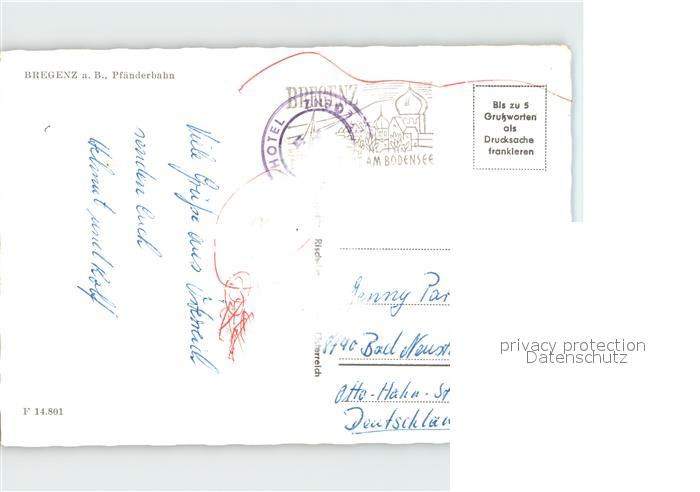 BREGENZ a. B., Pfänderbahn
BREGENZ
AM BODENSEE
HOTEL
Bis zu 5
Grußworten
als
Drucksache
frankieren
Viele Grüße aus Österreich
senden Euch
Helmut und Rolf
Österreich
Jenny Par
8740 Bad Neust
Otto-Hahn-St
Deutschlan
F 14.801
privacy protection
Datenschutz